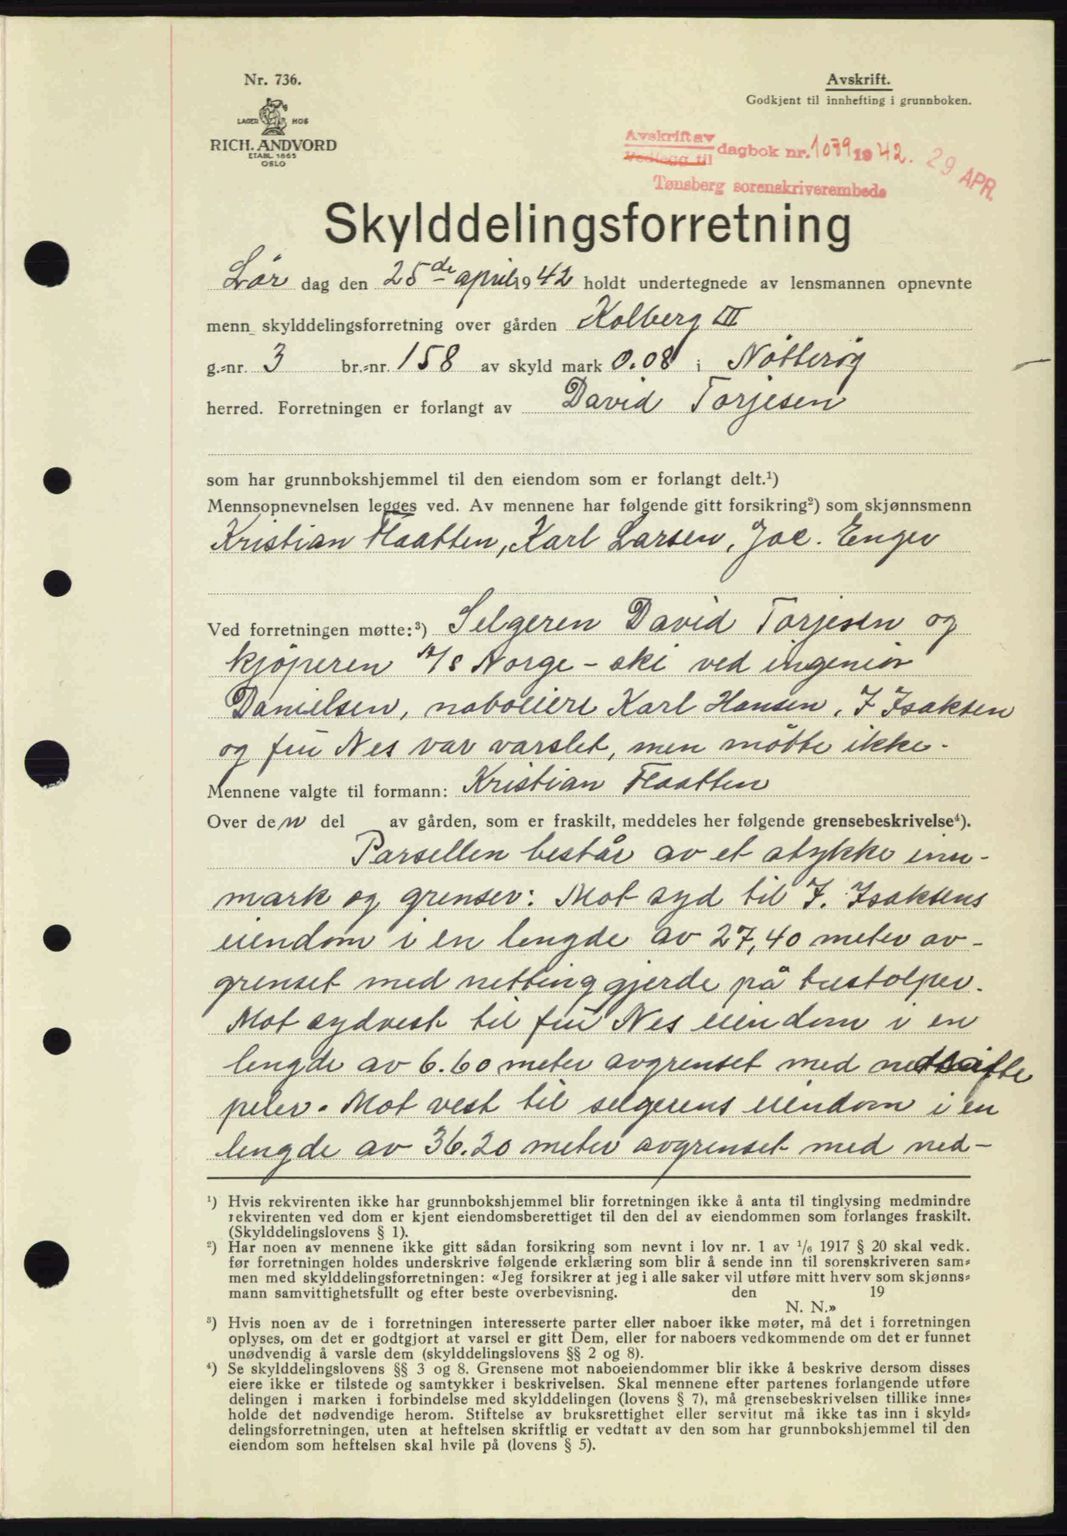 Nr. 736.
LAGER HOS
RICH. ANDVORD
ETABL 1865
OSLO
Avskrift.
Godkjent til innhefting i grunnboken.
Avskrift av
Vedlegg til
dagbok nr. 1079 1942. 29 APR.
Tønsberg sorenskriverembede
Skylddelingsforretning
Lør dag den 25de april 1942 holdt undertegnede av lensmannen opnevnte
menn skylddelingsforretning over gården Kolberg III
g.-nr. 3 br.-nr. 158 av skyld mark 0.08 i Nötterøy
herred. Forretningen er forlangt av David Torjesen
som har grunnbokshjemmel til den eiendom som er forlangt delt.¹)
Mennsopnevnelsen legges ved. Av mennene har følgende gitt forsikring²) som skjønnsmenn
Kristian Flaatten, Karl Larsen, Jac. Enger
Ved forretningen møtte:³) Selgeren David Torjesen og
kjöperen A/S Norge-ski ved ingeniör
Danielsen, naboeiere Karl Hansen, I Isaksen
og fru Nes var varslet, men mötte ikke.
Mennene valgte til formann: Kristian Flaatten
Over den del av gården, som er fraskilt, meddeles her følgende grensebeskrivelse⁴).
Parsellen består av et stykke inn-
mark og grenser: Mot syd til I. Isaksens
eiendom i en lengde av 27,40 meter av-
grenset med netting gjerde på trestolper.
Mot sydvest til fru Nes eiendom i en
lengde av 6.60 meter avgrenset med nedsatte
peler. Mot vest til selgerens eiendom i en
lengde av 36.20 meter avgrenset med ned-
¹) Hvis rekvirenten ikke har grunnbokshjemmel blir forretningen ikke å anta til tinglysing medmindre
rekvirenten ved dom er kjent eiendomsberettiget til den del av eiendommen som forlanges fraskilt.
(Skylddelingslovens § 1).
²) Har noen av mennene ikke gitt sådan forsikring som nevnt i lov nr. 1 av 1/6 1917 § 20 skal vedk.
før forretningen holdes underskrive følgende erklæring som blir å sende inn til sorenskriveren sam-
men med skylddelingsforretningen: «Jeg forsikrer at jeg i alle saker vil utføre mitt hverv som skjønns-
mann samvittighetsfullt og efter beste overbevisning. den 19
N. N.»
³) Hvis noen av de i forretningen interesserte parter eller naboer ikke møter, må det i forretningen
oplyses, om det er godtgjort at varsel er gitt Dem, eller for naboers vedkommende om det er funnet
unødvendig å varsle dem (skylddelingslovens §§ 2 og 8).
⁴) Se skylddelingslovens §§ 3 og 8. Grensene mot naboeiendommer blir ikke å beskrive dersom disses
eiere ikke er tilstede og samtykker i beskrivelsen. Skal mennene efter partenes forlangende utføre
delingen i marken i forbindelse med skylddelingen (lovens § 7), må grensebeskrivelsen tillike inne-
holde det nødvendige herom. Stiftelse av bruksrettighet eller servitut må ikke tas inn i skyld-
delingsforretningen, uten at heftelsen skriftlig er vedtatt av den som har grunnbokshjemmel til den
eiendom som heftelsen skal hvile på (lovens § 5).